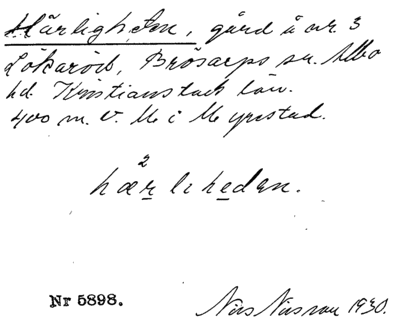 Härligheten, gård å nr 3
Lökaröd, Brösarps sn. Albo
hd. Kristianstads län.
400 m. V. M i Myrestad.
2
hærleheden.
Nr 5898.
Nils Nilsson 1930.